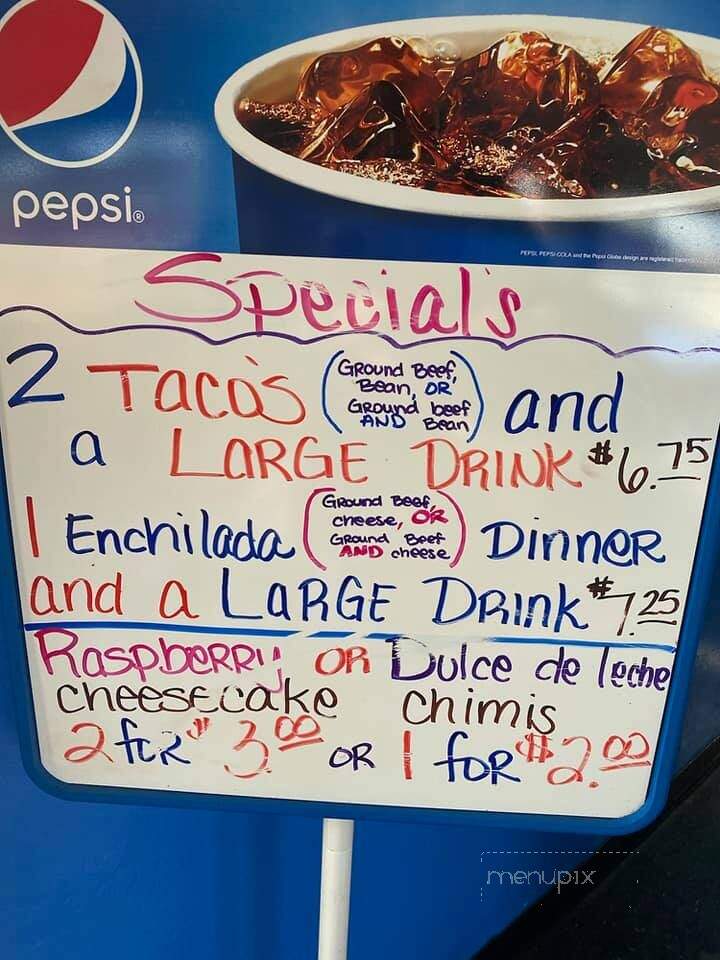 pepsi®
PEPSI, PEPSI-COLA and the Pepsi Globe design are registered
Special's
2 Taco's (Ground Beef, Bean, OR Ground beef AND Bean) and
a LARGE DRINK $6.75
1 Enchilada (Ground Beef, cheese, OR Ground Beef AND cheese) Dinner
and a LARGE Drink $7.25
Raspberry OR Dulce de leche
cheesecake chimis
2 for $3.00 OR 1 for $2.00
menupix